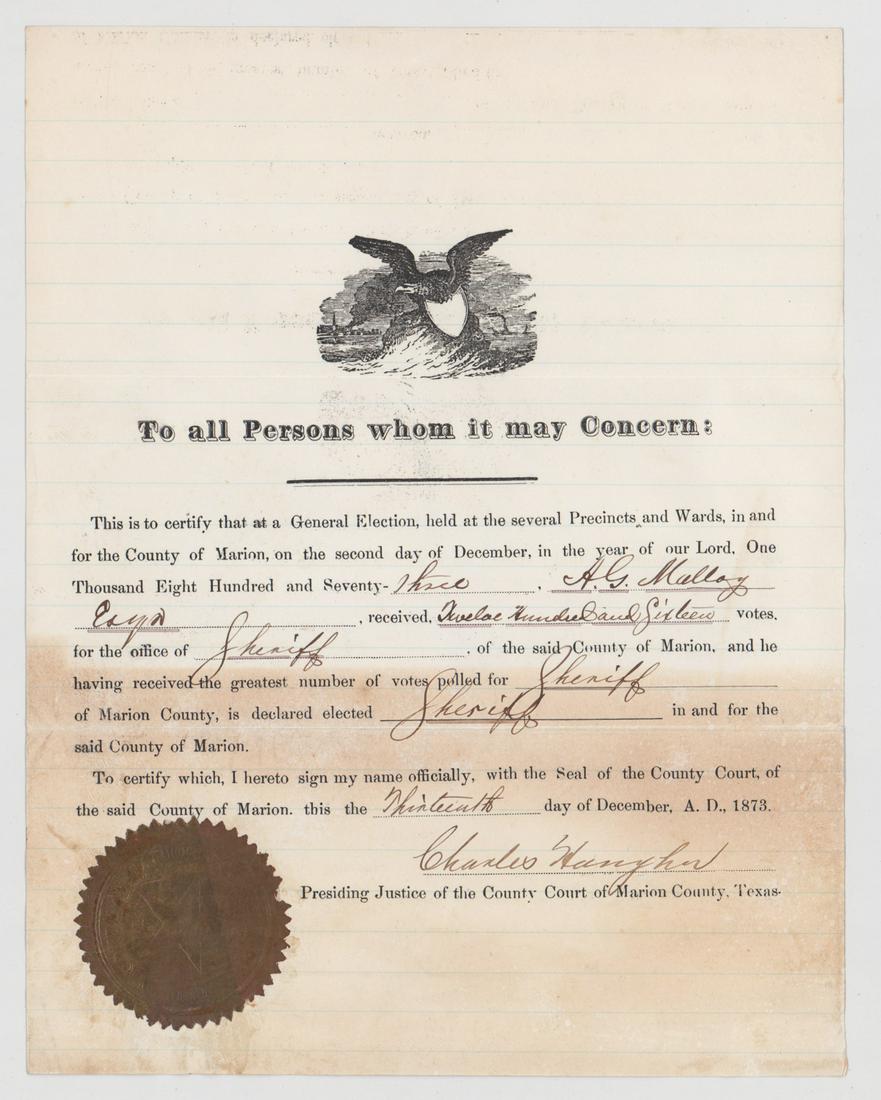 To all Persons whom it may Concern:
This is to certify that at a General Election, held at the several Precincts and Wards, in and
for the County of Marion, on the second day of December, in the year of our Lord, One
Thousand Eight Hundred and Seventy-three, A.G. Malloy
Esqr, received, Twelve Hundred and Sixteen votes.
for the office of Sheriff, of the said County of Marion, and he
having received the greatest number of votes polled for Sheriff
of Marion County, is declared elected Sheriff in and for the
said County of Marion.
To certify which, I hereto sign my name officially, with the Seal of the County Court, of
the said County of Marion. this the Thirteenth day of December, A. D., 1873.
Charles
Presiding Justice of the County Court of Marion County, Texas.